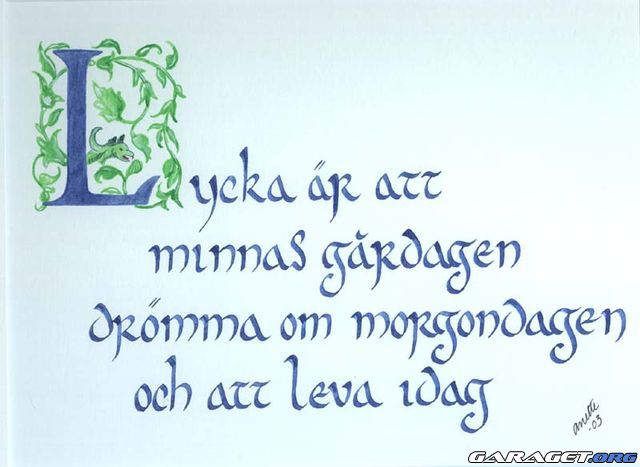 Lycka är att
minnas gårdagen
drömma om morgondagen
och att leva idag
anette
-03
GARAGET.ORG